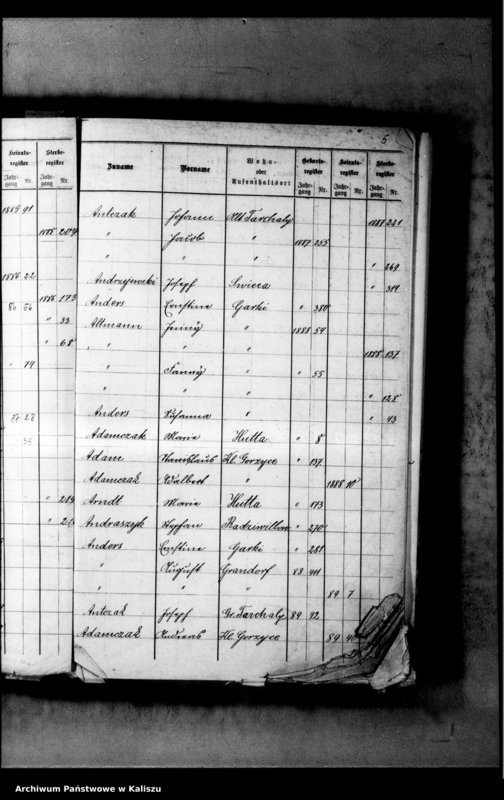 5
Heirats-register Sterbe-register
Jahr-gang Nr. Jahr-gang Nr.
1885 91
1885 204
1886 22
86 56 1886 173
" 33
" 68
" 74
" 214
Zuname Vorname Wohn- oder Aufenthaltsort Geburts-register Heirats-register Sterbe-register
Jahr-gang Nr. Jahr-gang Nr. Jahr-gang Nr.
Antczak Johann Alt Tarchaly 1887 221
" Jacob " 1887 255
" " " " 269
Andrzejewski Josef Swieca " 314
Anders Ernstine Garki " 380
Altmann Jenny " 1888 54
" " " 1888 137
" Fanny " " 55
" " " " 128
Anders Susanna " " 43
Adamczak Marie Hutta " 8
Adam Stanislaus Kl. Gorzyce " 137
Adamczak Walbert " 1888 10
Arndt Marie Hutta " 173
Andraszyk Stefan Radziwillow " 270
Anders Ernstine Garki " 281
" August Grandorf 88 411
" " " 89 7
Antczak Josef Gr. Tarchaly 89 42
Adamczak Andreas Kl. Gorzyce 89
Archiwum Państwowe w Kaliszu